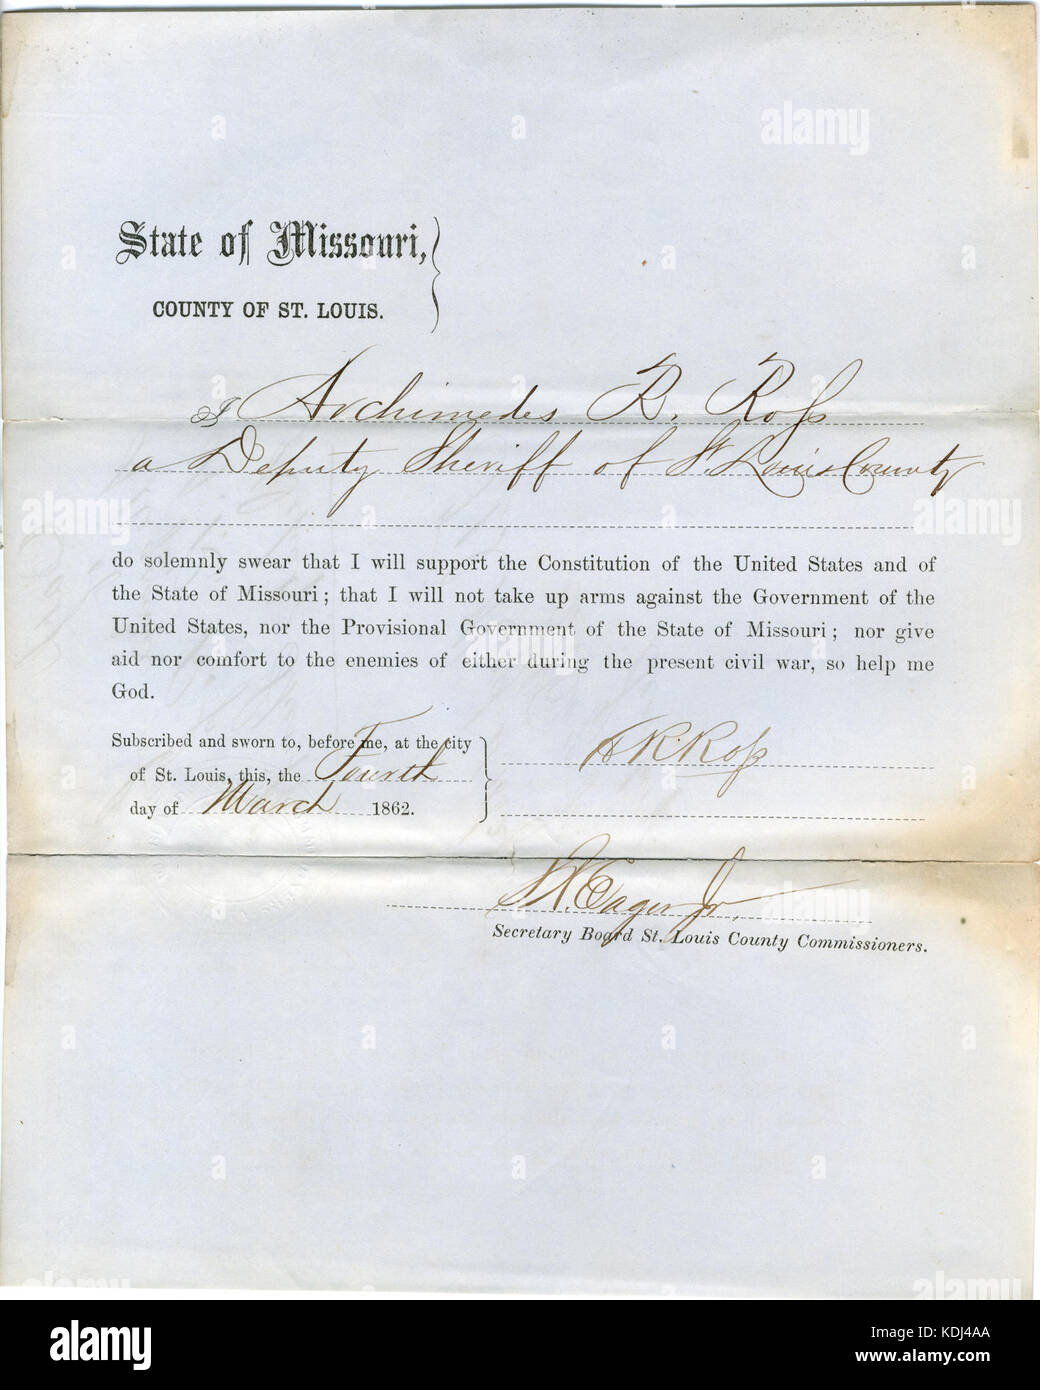 State of Missouri,
COUNTY OF ST. LOUIS.
I Archimedes R. Ross
a Deputy Sheriff of St. Louis County
do solemnly swear that I will support the Constitution of the United States and of
the State of Missouri; that I will not take up arms against the Government of the
United States, nor the Provisional Government of the State of Missouri; nor give
aid nor comfort to the enemies of either during the present civil war, so help me
God.
Subscribed and sworn to, before me, at the city
of St. Louis, this, the Fourth
day of March 1862.
A R. Ross
Eager Jr.
Secretary Board St. Louis County Commissioners.
alamy
Image ID: KDJ4AA
www.alamy.com